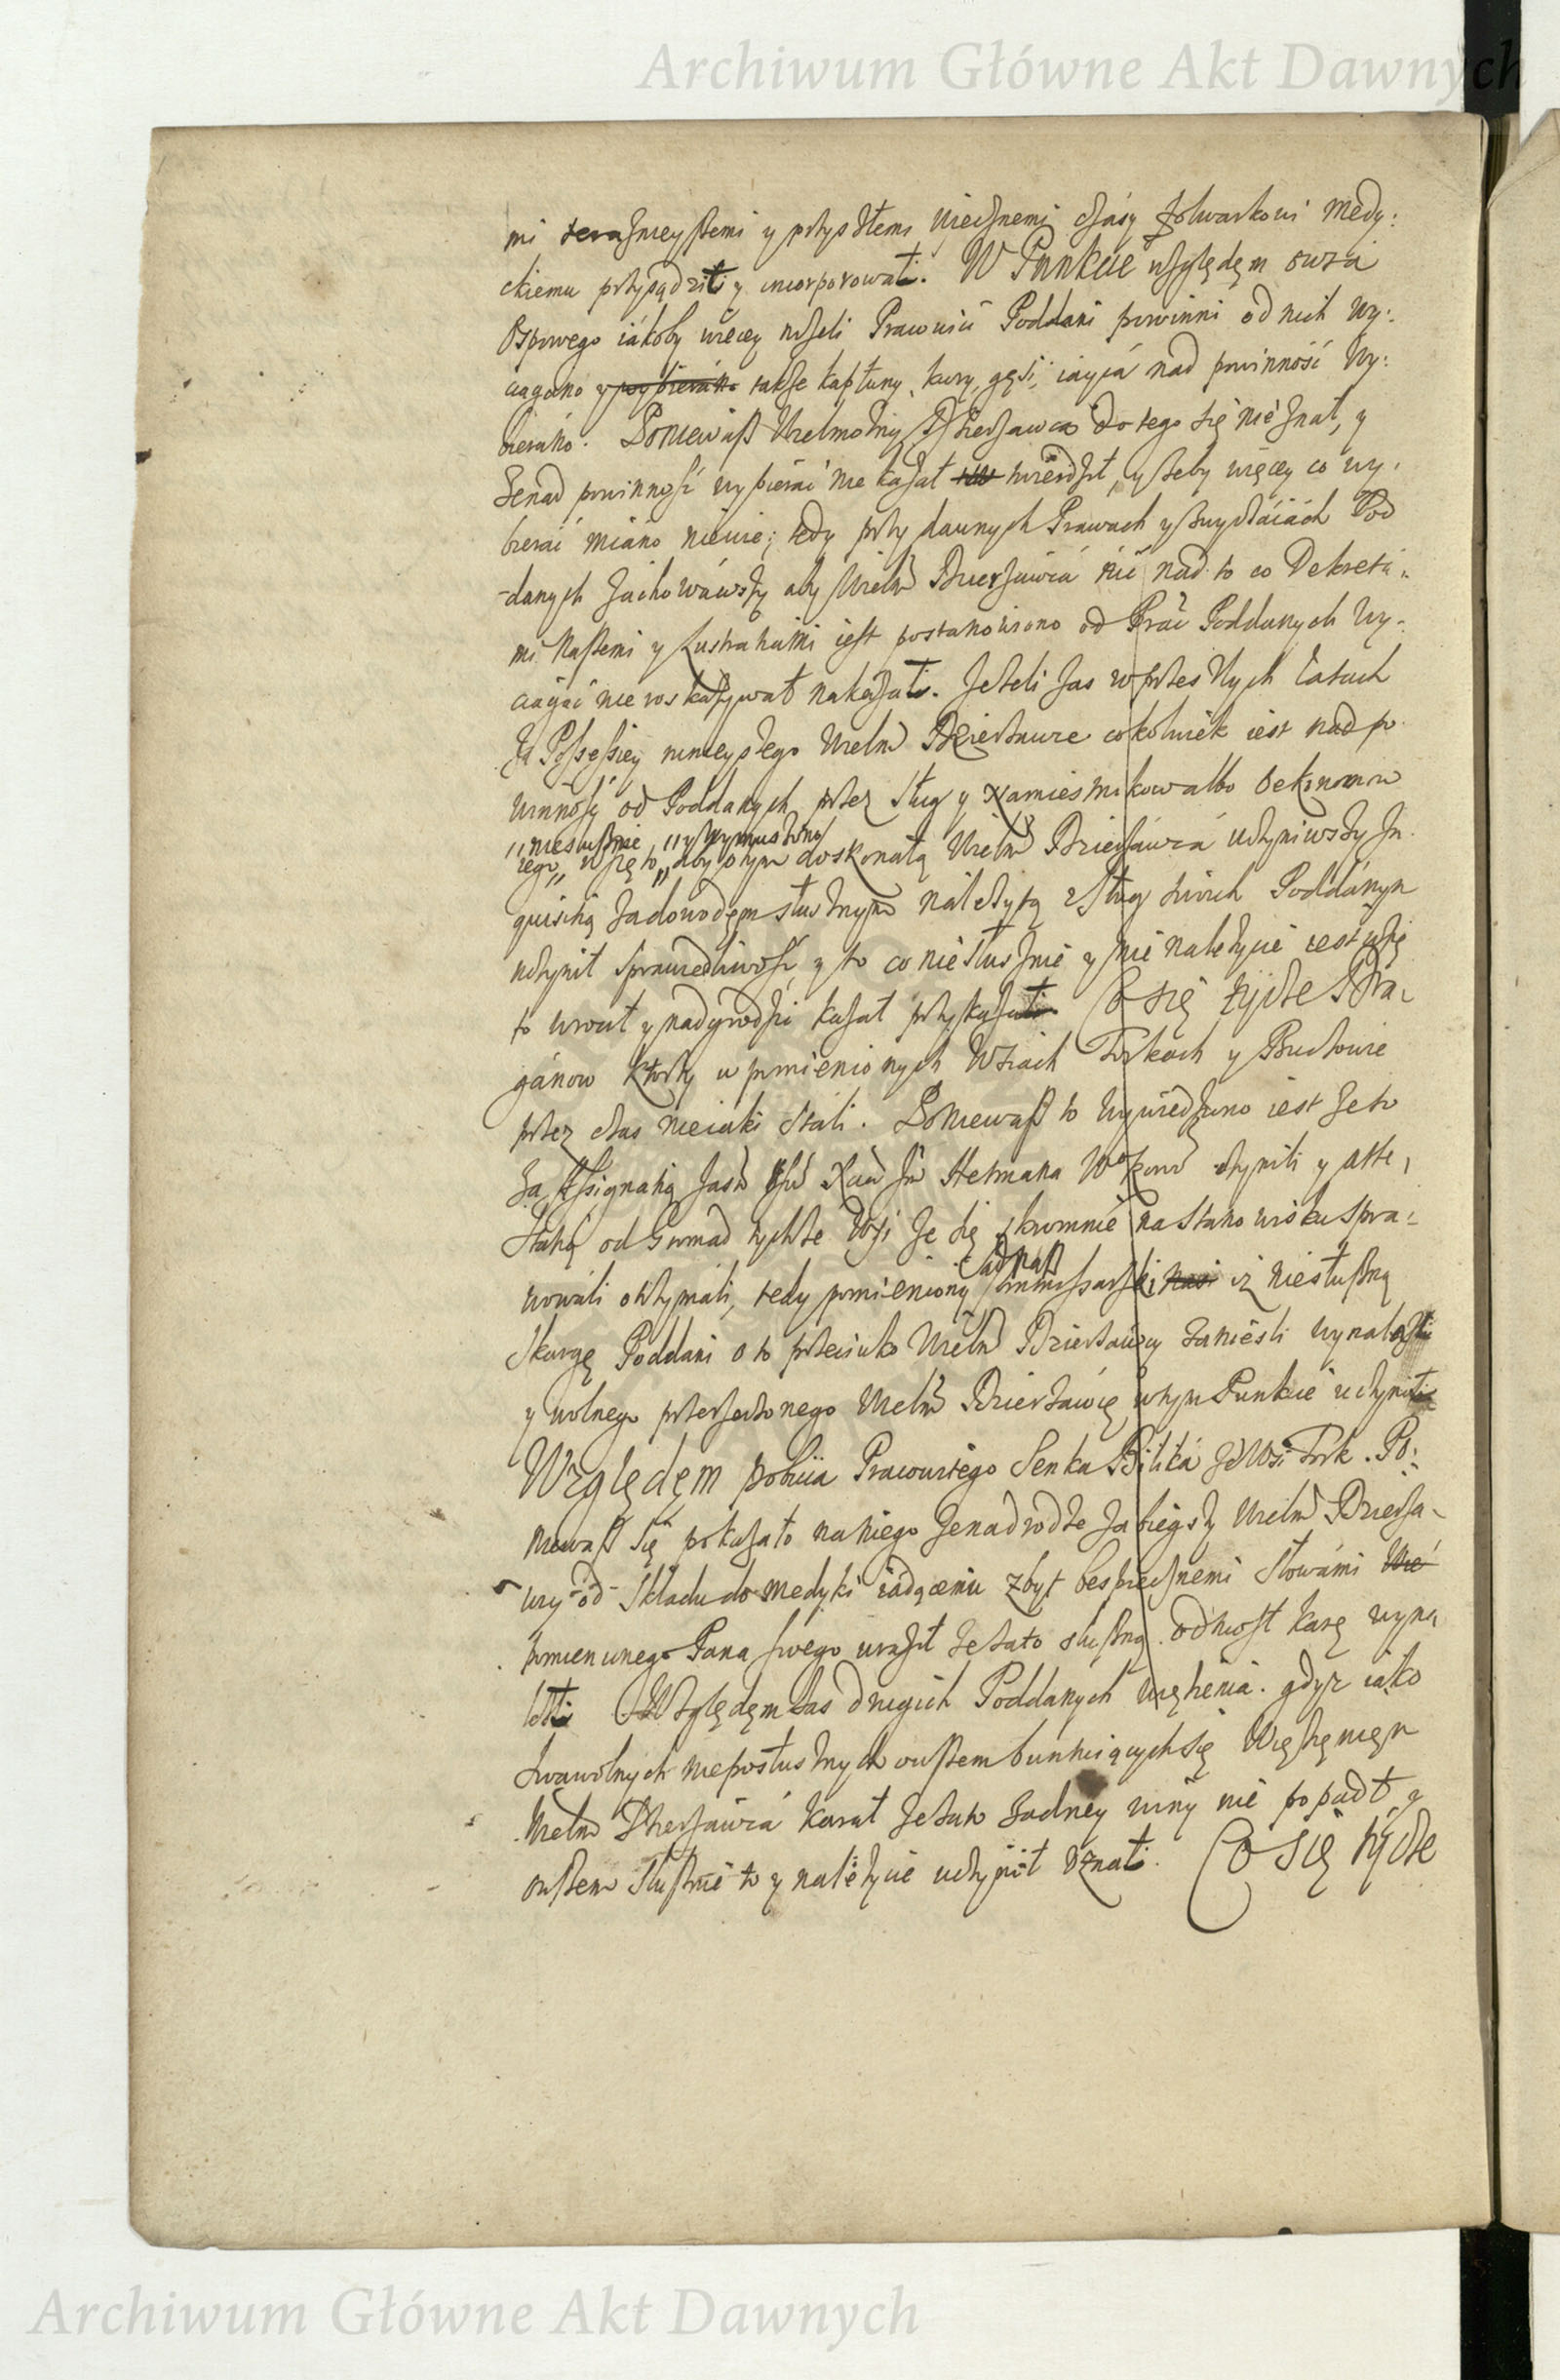 Archiwum Główne Akt Dawnych
mi teraznieyszemi y przyszłemi wiecznemi czásy folwarkowi Medy:
ckiemu przysądzili y incorporowali. W Punkcie względęm owsa
Ospowego iákoby więcey niżeli Prawnieć Poddani powinni od nich wy:
ciągano y wybieráno także kapłuny, kury, gęśi, iáycá nad powinność wy:
bieráno. Poniewasz Wielmożny Dzierzawca do tego się nie znał, y
że nad powinność wybieráć nie kazał twierdził, y żeby więcey co wy,
bieráć miáno niewie; tedy przy dawnych Prawach y zwyczáiách Pod
danych záchowáwszy aby Wielm Dzierzawcá nic nad to co Dekretá:
mi Naszemi y Lustracyiámi iest postanowiono od Prac Poddanych wy:
ciągać nie roskazywał nakazali. Jeżeli zas w przeszłych czasach
za Possessiey ninieyszego Wielm Dzierżawce cokolwiek iest nad po
winność od Poddanych przez sług y Namiesnikow albo Oekonomow
,,niesłusznie ,,y wymuszono
iego,, wzięto,, aby o tym doskonałą Wielm Dzierżáwcá uczyniwszy In
quisicią za dowodęm słusznym należytą z sług swoich Poddánym
uczynił sprawiedliwość, y to co niesłusznie y nie należycie iest wzię
to wrocił y nadgrodzić kazał przykazali Co się tycze Dra:
gánow ktorzy w pomienionych Wsiách Torkach y Buczowie
przez czas nieiaki stáli. Poniewasz to wywiedziono iest że to
za Assignacią Jasń Hetmana czynili y atte,
stácią od Gromad tychże Wsi że się skromnie na stanowisku spra:
wowáli otrzymáli, tedy pomieniony Commissarski nasi iż niesłuszną
Sąd Nasz
Skargę Poddani o to przeciwko Wielm Dzierżawcy zanieśli wynalezli
y wolnego przerzeczonego Wielm Dzierżáwcę w tym Punkcie uczynili
Względęm pobicia Pracowitego Senka Bilika ze Wsi Tork. Po:
niewasz się pokazało na niego że na drodze zabiegszy Wielm Dzierża:
wcy od Składu do Medyki iádącemu zbyt bespiecznemi słowámi
pomienionego Pana swego uraził że za to słuszną odniosł karę wyna
lezli Względęm zas drugich Poddanych więzienia. gdyż iáko
swawolnych nieposłusznych owszem buntuiących się Więzieniem
Wielm Dzierżawcá karał że za to żadney winy nie popadł y
owszem słusznie to y należycie uczynił uznali. Co się tycze
Archiwum Główne Akt Dawnych